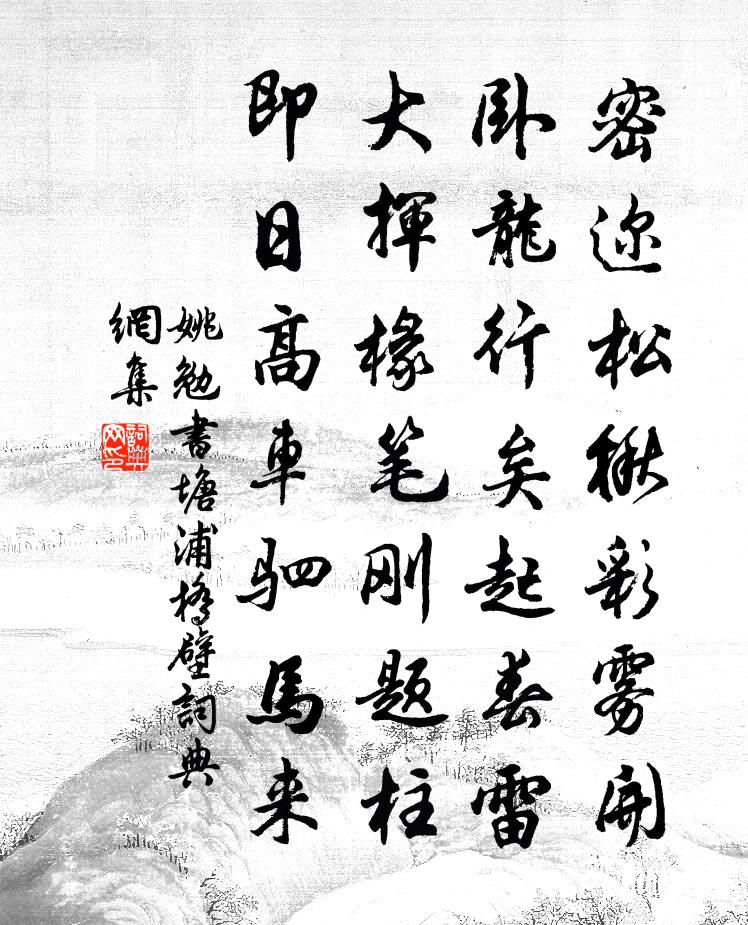 密迩松楸彩雾開
卧龍行矣起春雷
大揮椽笔刚题柱
即日高車驷馬来
姚勉書塘浦橋壁詞典
網集